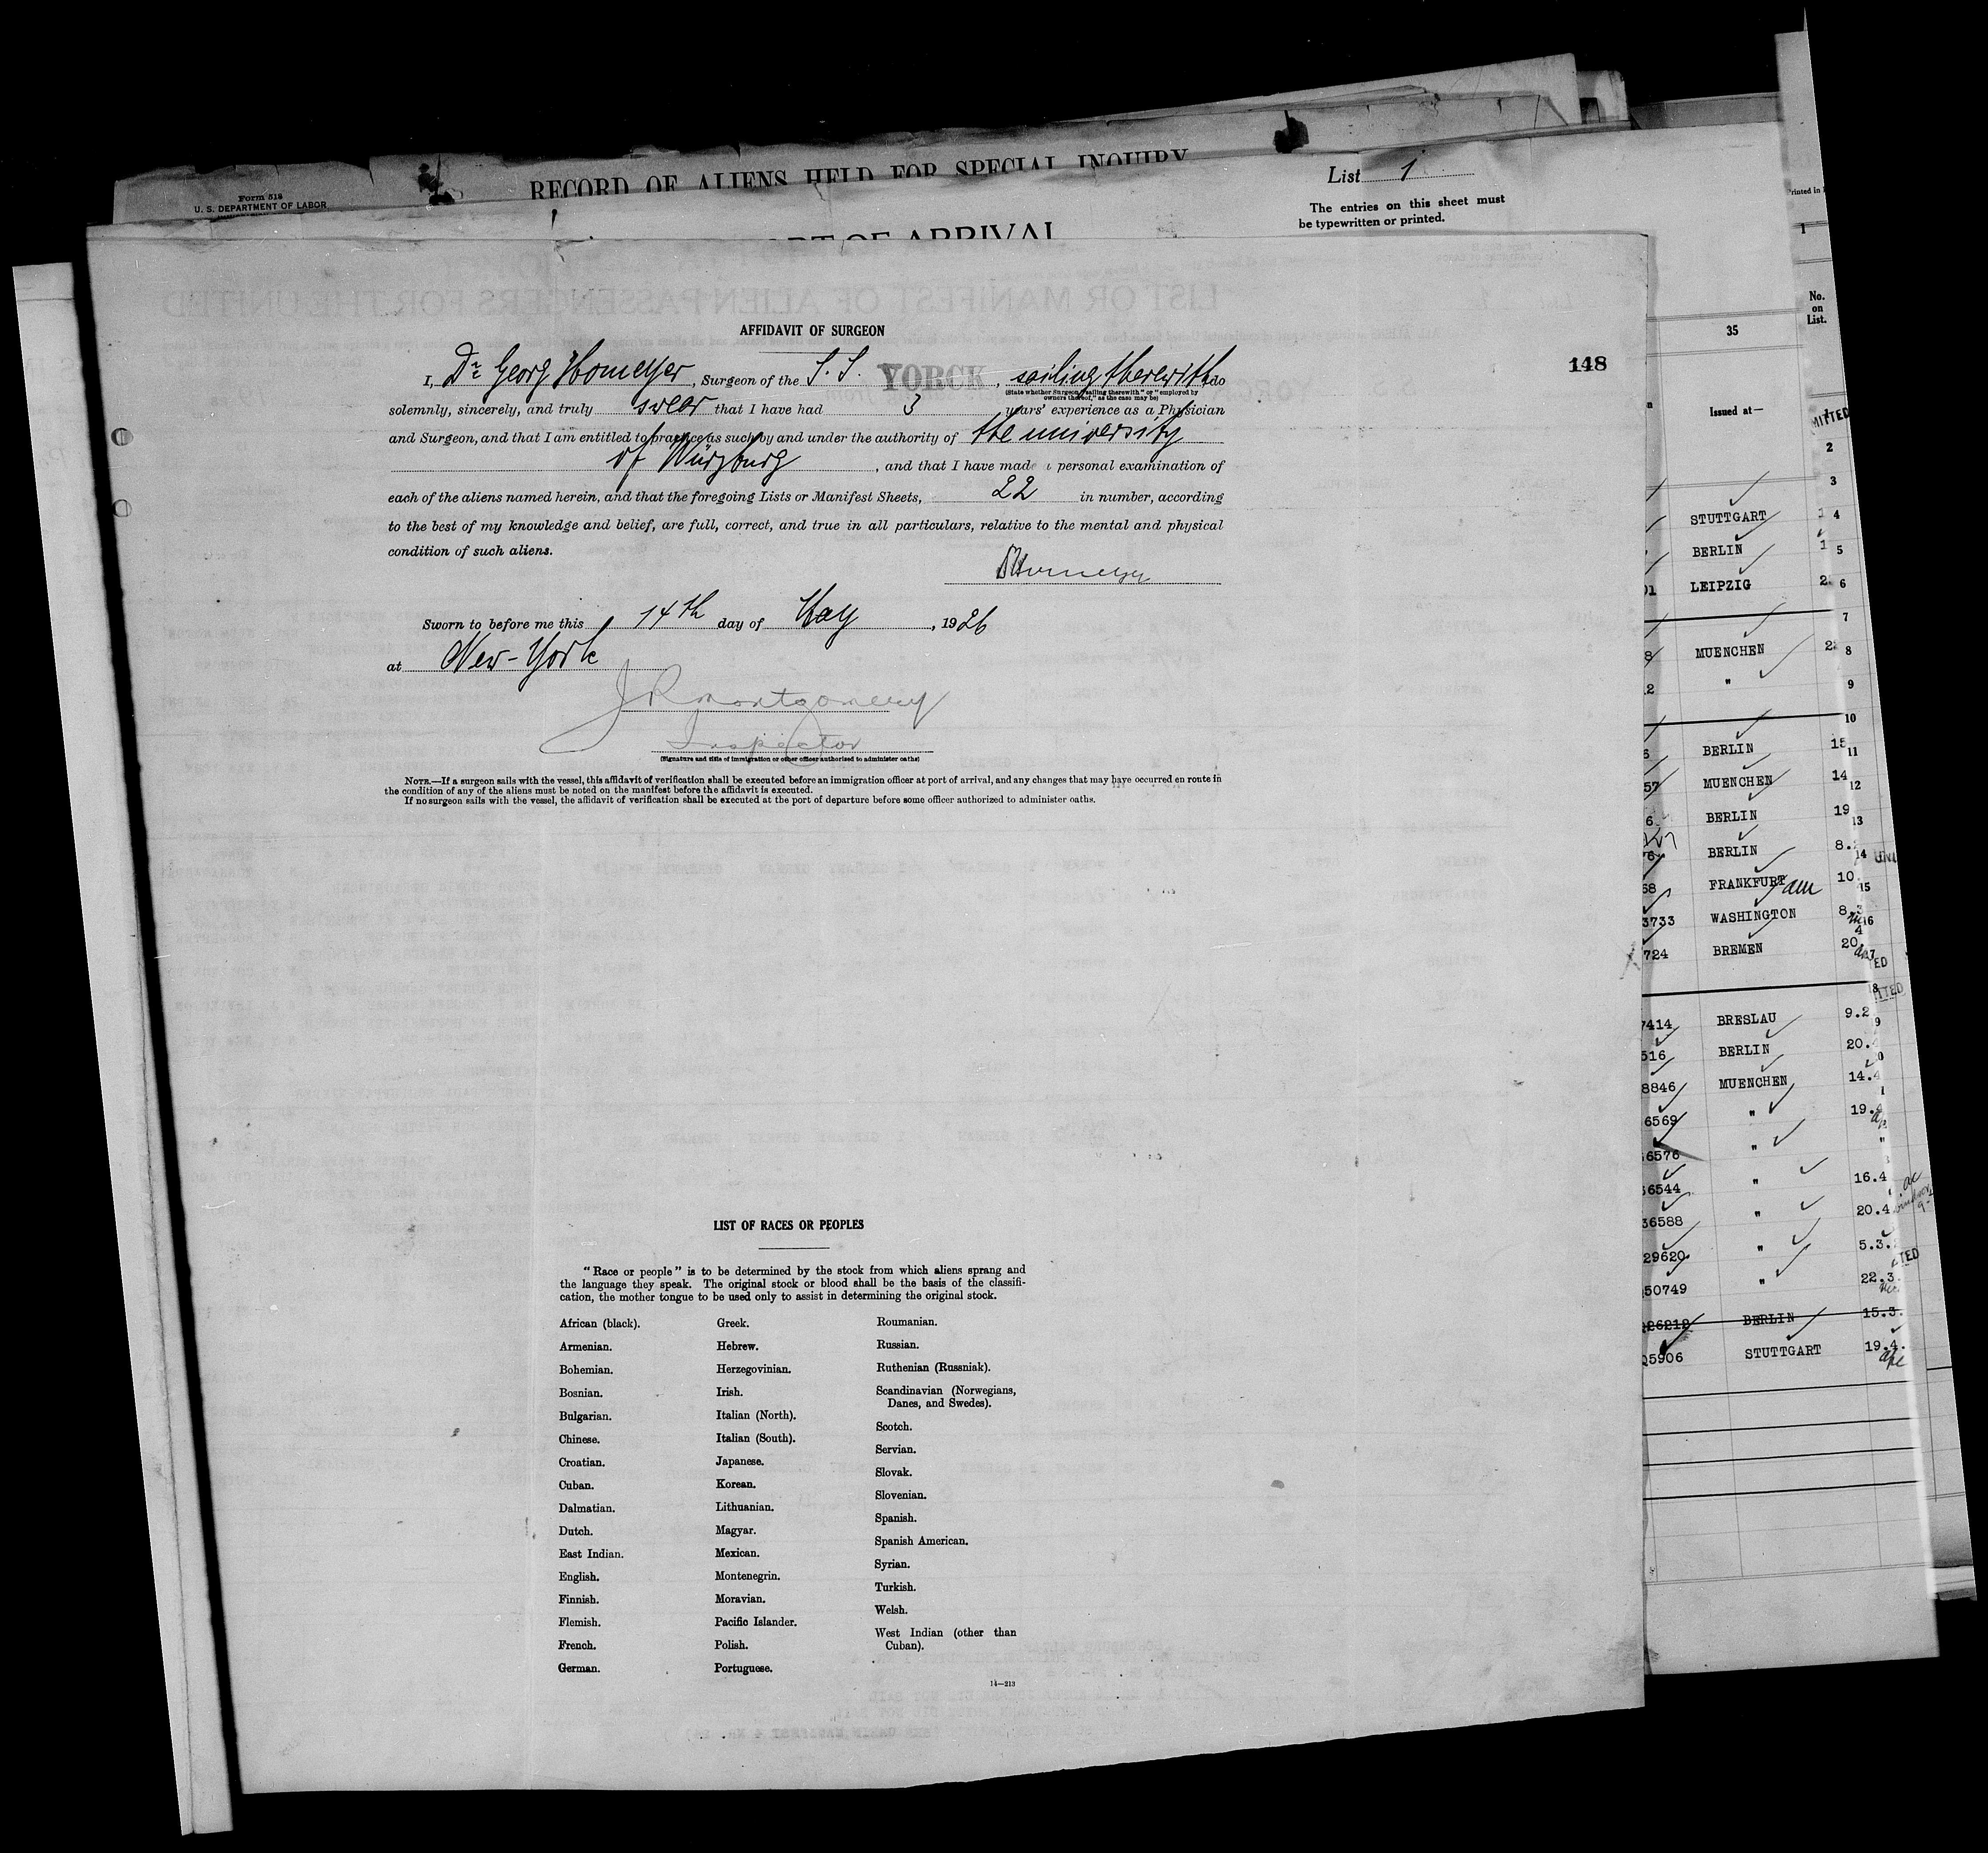 Form 518
U. S. DEPARTMENT OF LABOR
RECORD OF ALIENS HELD FOR SPECIAL INQUIRY
List 1
The entries on this sheet must
be typewritten or printed.
OF ARRIVAL
LIST OR MANIFEST OF ALIEN PASSENGERS FOR THE UNITED
148
AFFIDAVIT OF SURGEON
I, Dr Georg Homeyer, Surgeon of the S. S. YORCK, sailing therewith, do
(State whether Surgeon "sailing therewith" or "employed by
owners thereof," as the case may be)
solemnly, sincerely, and truly swear that I have had 3 years' experience as a Physician
and Surgeon, and that I am entitled to practice as such by and under the authority of the university
of Würzburg, and that I have made a personal examination of
each of the aliens named herein, and that the foregoing Lists or Manifest Sheets, 22 in number, according
to the best of my knowledge and belief, are full, correct, and true in all particulars, relative to the mental and physical
condition of such aliens.
Homeyer
Sworn to before me this 14th day of May, 1926
at New-York
J R Montgomery
Inspector
(Signature and title of immigration or other officer authorized to administer oaths)
NOTE.—If a surgeon sails with the vessel, this affidavit of verification shall be executed before an immigration officer at port of arrival, and any changes that may have occurred en route in
the condition of any of the aliens must be noted on the manifest before the affidavit is executed.
If no surgeon sails with the vessel, the affidavit of verification shall be executed at the port of departure before some officer authorized to administer oaths.
LIST OF RACES OR PEOPLES
"Race or people" is to be determined by the stock from which aliens sprang and
the language they speak. The original stock or blood shall be the basis of the classifi-
cation, the mother tongue to be used only to assist in determining the original stock.
African (black).
Armenian.
Bohemian.
Bosnian.
Bulgarian.
Chinese.
Croatian.
Cuban.
Dalmatian.
Dutch.
East Indian.
English.
Finnish.
Flemish.
French.
German.
Greek.
Hebrew.
Herzegovinian.
Irish.
Italian (North).
Italian (South).
Japanese.
Korean.
Lithuanian.
Magyar.
Mexican.
Montenegrin.
Moravian.
Pacific Islander.
Polish.
Portuguese.
Roumanian.
Russian.
Ruthenian (Russniak).
Scandinavian (Norwegians,
Danes, and Swedes).
Scotch.
Servian.
Slovak.
Slovenian.
Spanish.
Spanish American.
Syrian.
Turkish.
Welsh.
West Indian (other than
Cuban).
14—213
35
Issued at—
No.
on
List.
STUTTGART
BERLIN
LEIPZIG
MUENCHEN
"
BERLIN
MUENCHEN
BERLIN
BERLIN
FRANKFURT am
3733 WASHINGTON 8.3
724 BREMEN 20.
7414 BRESLAU 9.2
516 BERLIN 20.
8846 MUENCHEN 14.4
6569 " 19.
6576 " "
6544 " 16.4
36588 " 20.4
29620 " 5.3.
50749 " 22.3.
26212 BERLIN 15.3.
5906 STUTTGART 19.4.